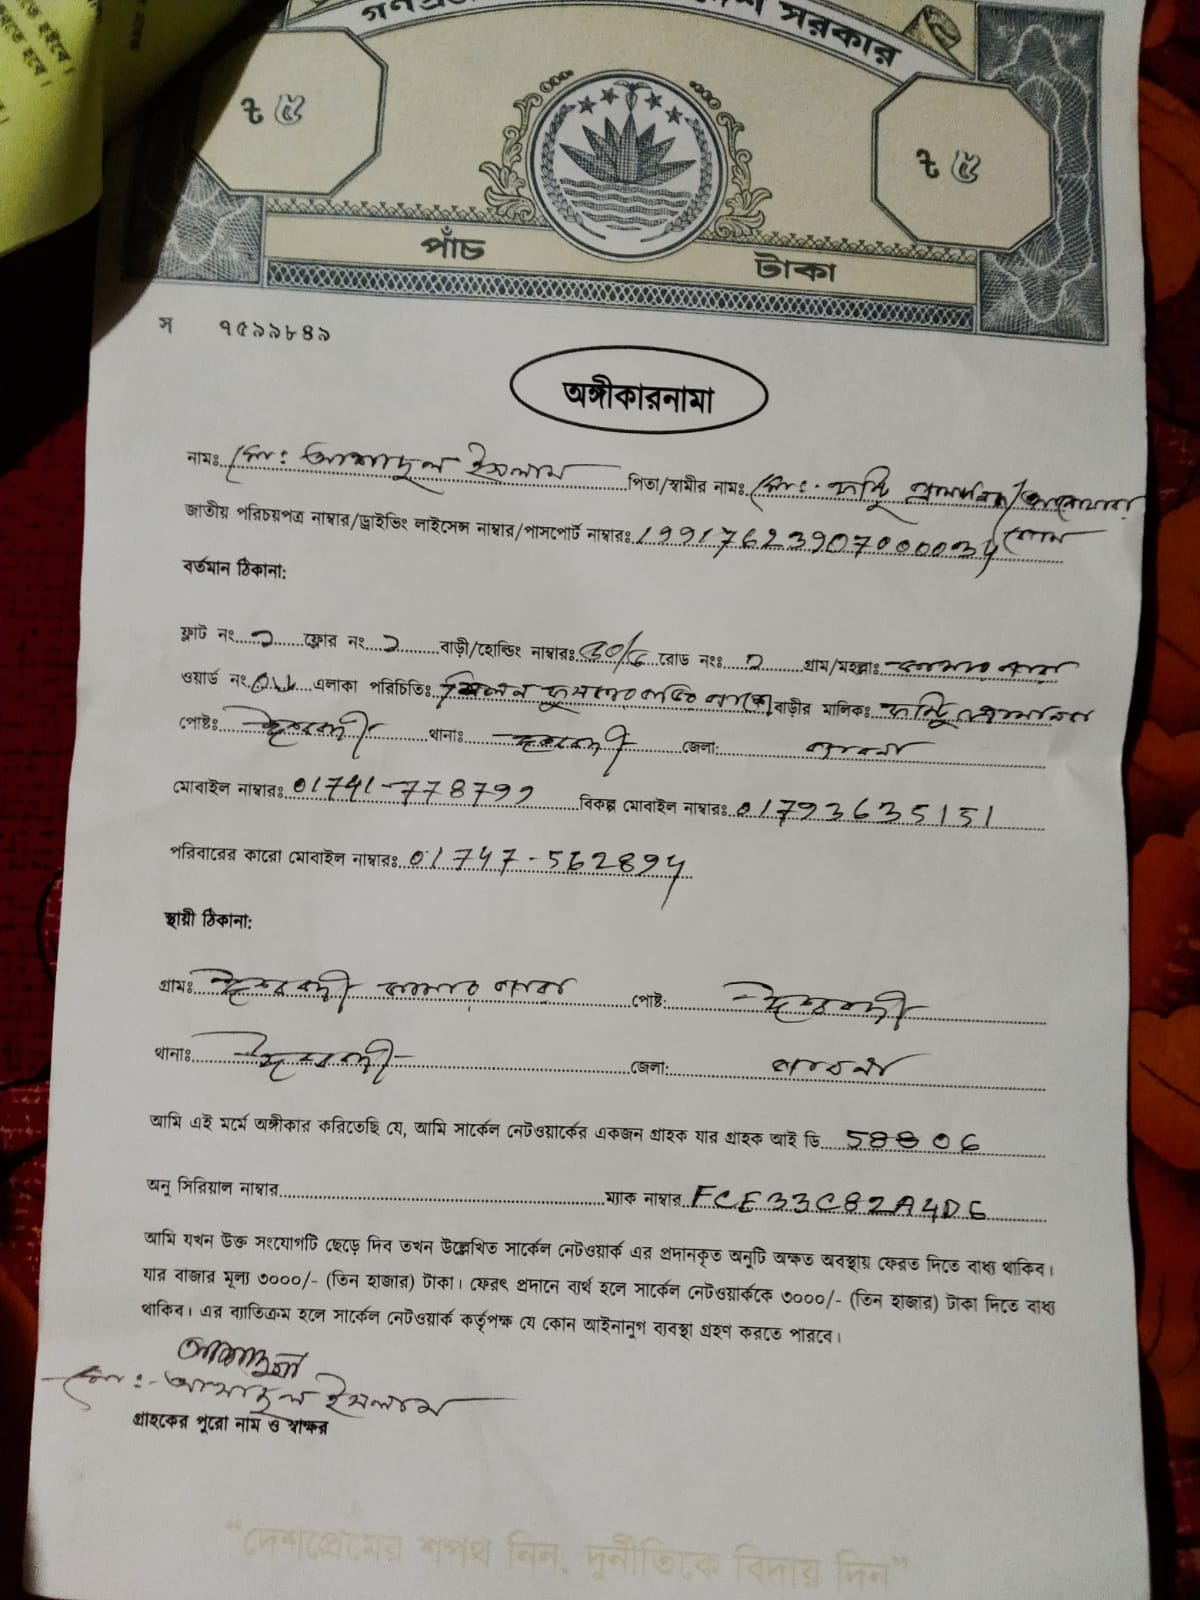 সরকার
৳ ৫
৳ ৫
পাঁচ টাকা
স ৭৫৯৯৮৪৯
অঙ্গীকারনামা
নামঃ মোঃ আশাদুল ইসলাম পিতা/স্বামীর নামঃ মোঃ
জাতীয় পরিচয়পত্র নাম্বার/ড্রাইভিং লাইসেন্স নাম্বার/পাসপোর্ট নাম্বারঃ
বর্তমান ঠিকানা:
ফ্লাট নং ফ্লোর নং বাড়ী/হোল্ডিং নাম্বারঃ রোড নংঃ গ্রাম/মহল্লাঃ
ওয়ার্ড নং এলাকা পরিচিতিঃ বাড়ীর মালিকঃ
পোষ্টঃ ঈশ্বরদী থানাঃ ঈশ্বরদী জেলা: পাবনা
মোবাইল নাম্বারঃ 01741-778799 বিকল্প মোবাইল নাম্বারঃ 01793635151
পরিবারের কারো মোবাইল নাম্বারঃ 01747-562894
স্থায়ী ঠিকানা:
গ্রামঃ ঈশ্বরদী পোষ্ট: ঈশ্বরদী
থানাঃ ঈশ্বরদী জেলা: পাবনা
আমি এই মর্মে অঙ্গীকার করিতেছি যে, আমি সার্কেল নেটওয়ার্কের একজন গ্রাহক যার গ্রাহক আই ডি 58806
অনু সিরিয়াল নাম্বার ম্যাক নাম্বার FCE33C82A4D6
আমি যখন উক্ত সংযোগটি ছেড়ে দিব তখন উল্লেখিত সার্কেল নেটওয়ার্ক এর প্রদানকৃত অনুটি অক্ষত অবস্থায় ফেরত দিতে বাধ্য থাকিব।
যার বাজার মূল্য ৩০০০/- (তিন হাজার) টাকা। ফেরৎ প্রদানে ব্যর্থ হলে সার্কেল নেটওয়ার্ককে ৩০০০/- (তিন হাজার) টাকা দিতে বাধ্য
থাকিব। এর ব্যাতিক্রম হলে সার্কেল নেটওয়ার্ক কর্তৃপক্ষ যে কোন আইনানুগ ব্যবস্থা গ্রহণ করতে পারবে।
আশাদুল
মোঃ- আশাদুল ইসলাম
গ্রাহকের পুরো নাম ও স্বাক্ষর
“দেশপ্রেমের শপথ নিন, দুর্নীতিকে বিদায় দিন”